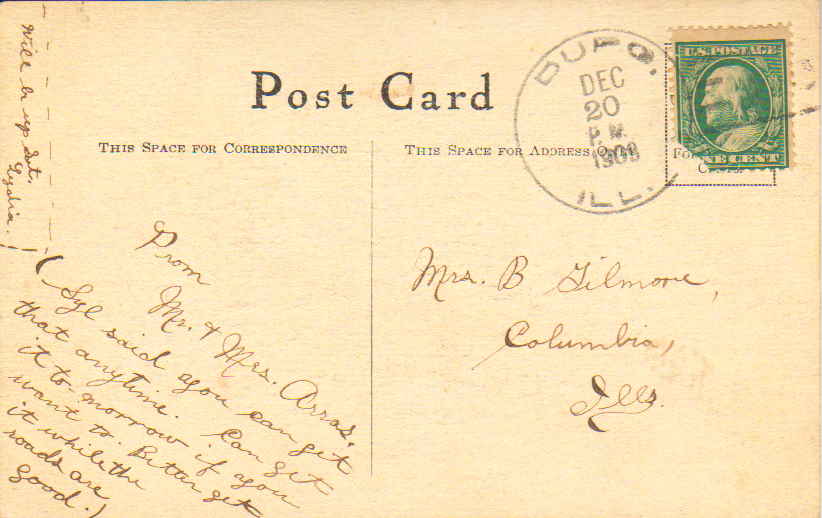 Will be up Sat.
Lydia.
Post Card
THIS SPACE FOR CORRESPONDENCE
THIS SPACE FOR ADDRESS ONLY
DUPO.
DEC
20
P.M.
1909
ILL.
U.S. POSTAGE
ONE CENT
From
Mr. & Mrs. Arras.
(Syl said you can get
that anytime. Can get
it to morrow if you
want to. Better get
it while the
roads are
good.)
Mrs. B Gilmore,
Columbia,
Ills.